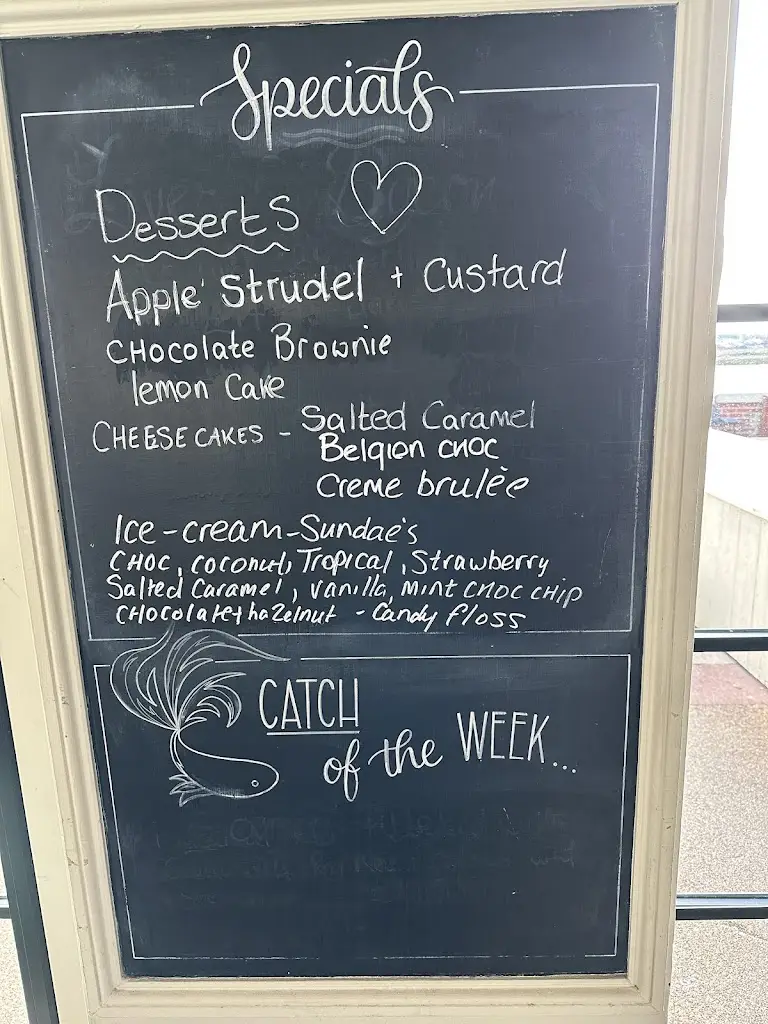 Specials
Desserts
Apple Strudel + Custard
CHocolate Brownie
lemon Cake
CHEESECAKES - Salted Caramel
Belgian CHOC
Creme brulèe
Ice-cream-Sundae's
CHOC, coconut, Tropical, Strawberry
Salted Caramel, vanilla, MINT CHOC CHIP
CHocolate+hazelnut - Candy floss
CATCH
of the WEEK...